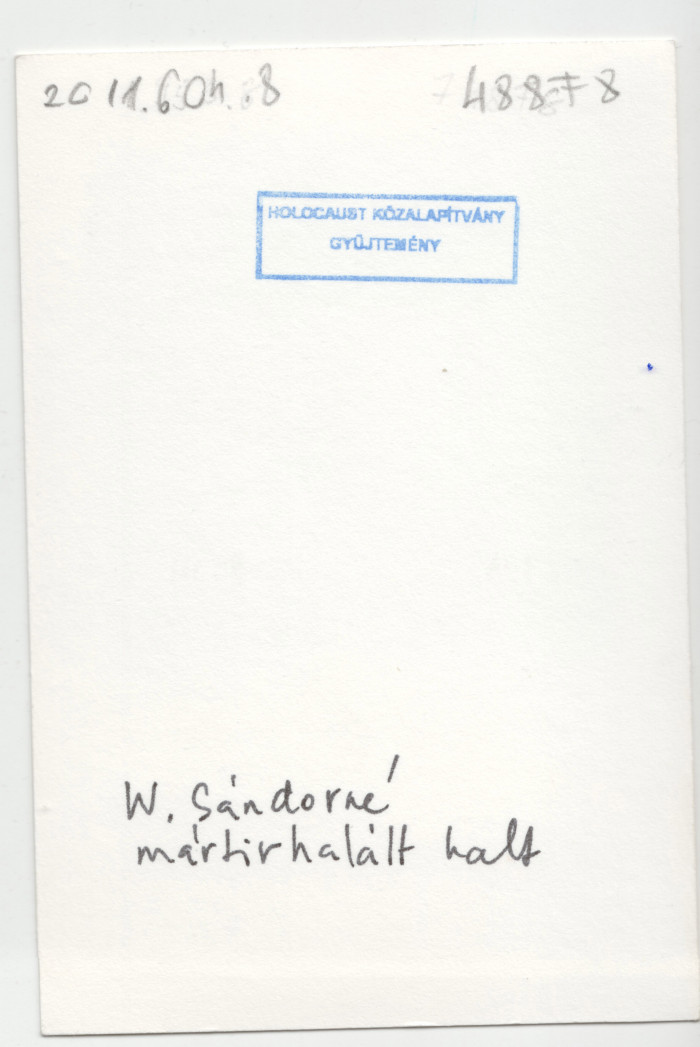 2011.604.8 48878
HOLOCAUST KÖZALAPÍTVÁNY
GYŰJTEMÉNY
W. Sándorné
mártirhalált halt